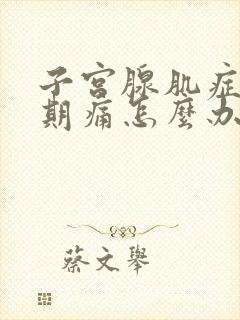 子宫腺肌症
期痛怎麼办
蔡文舉